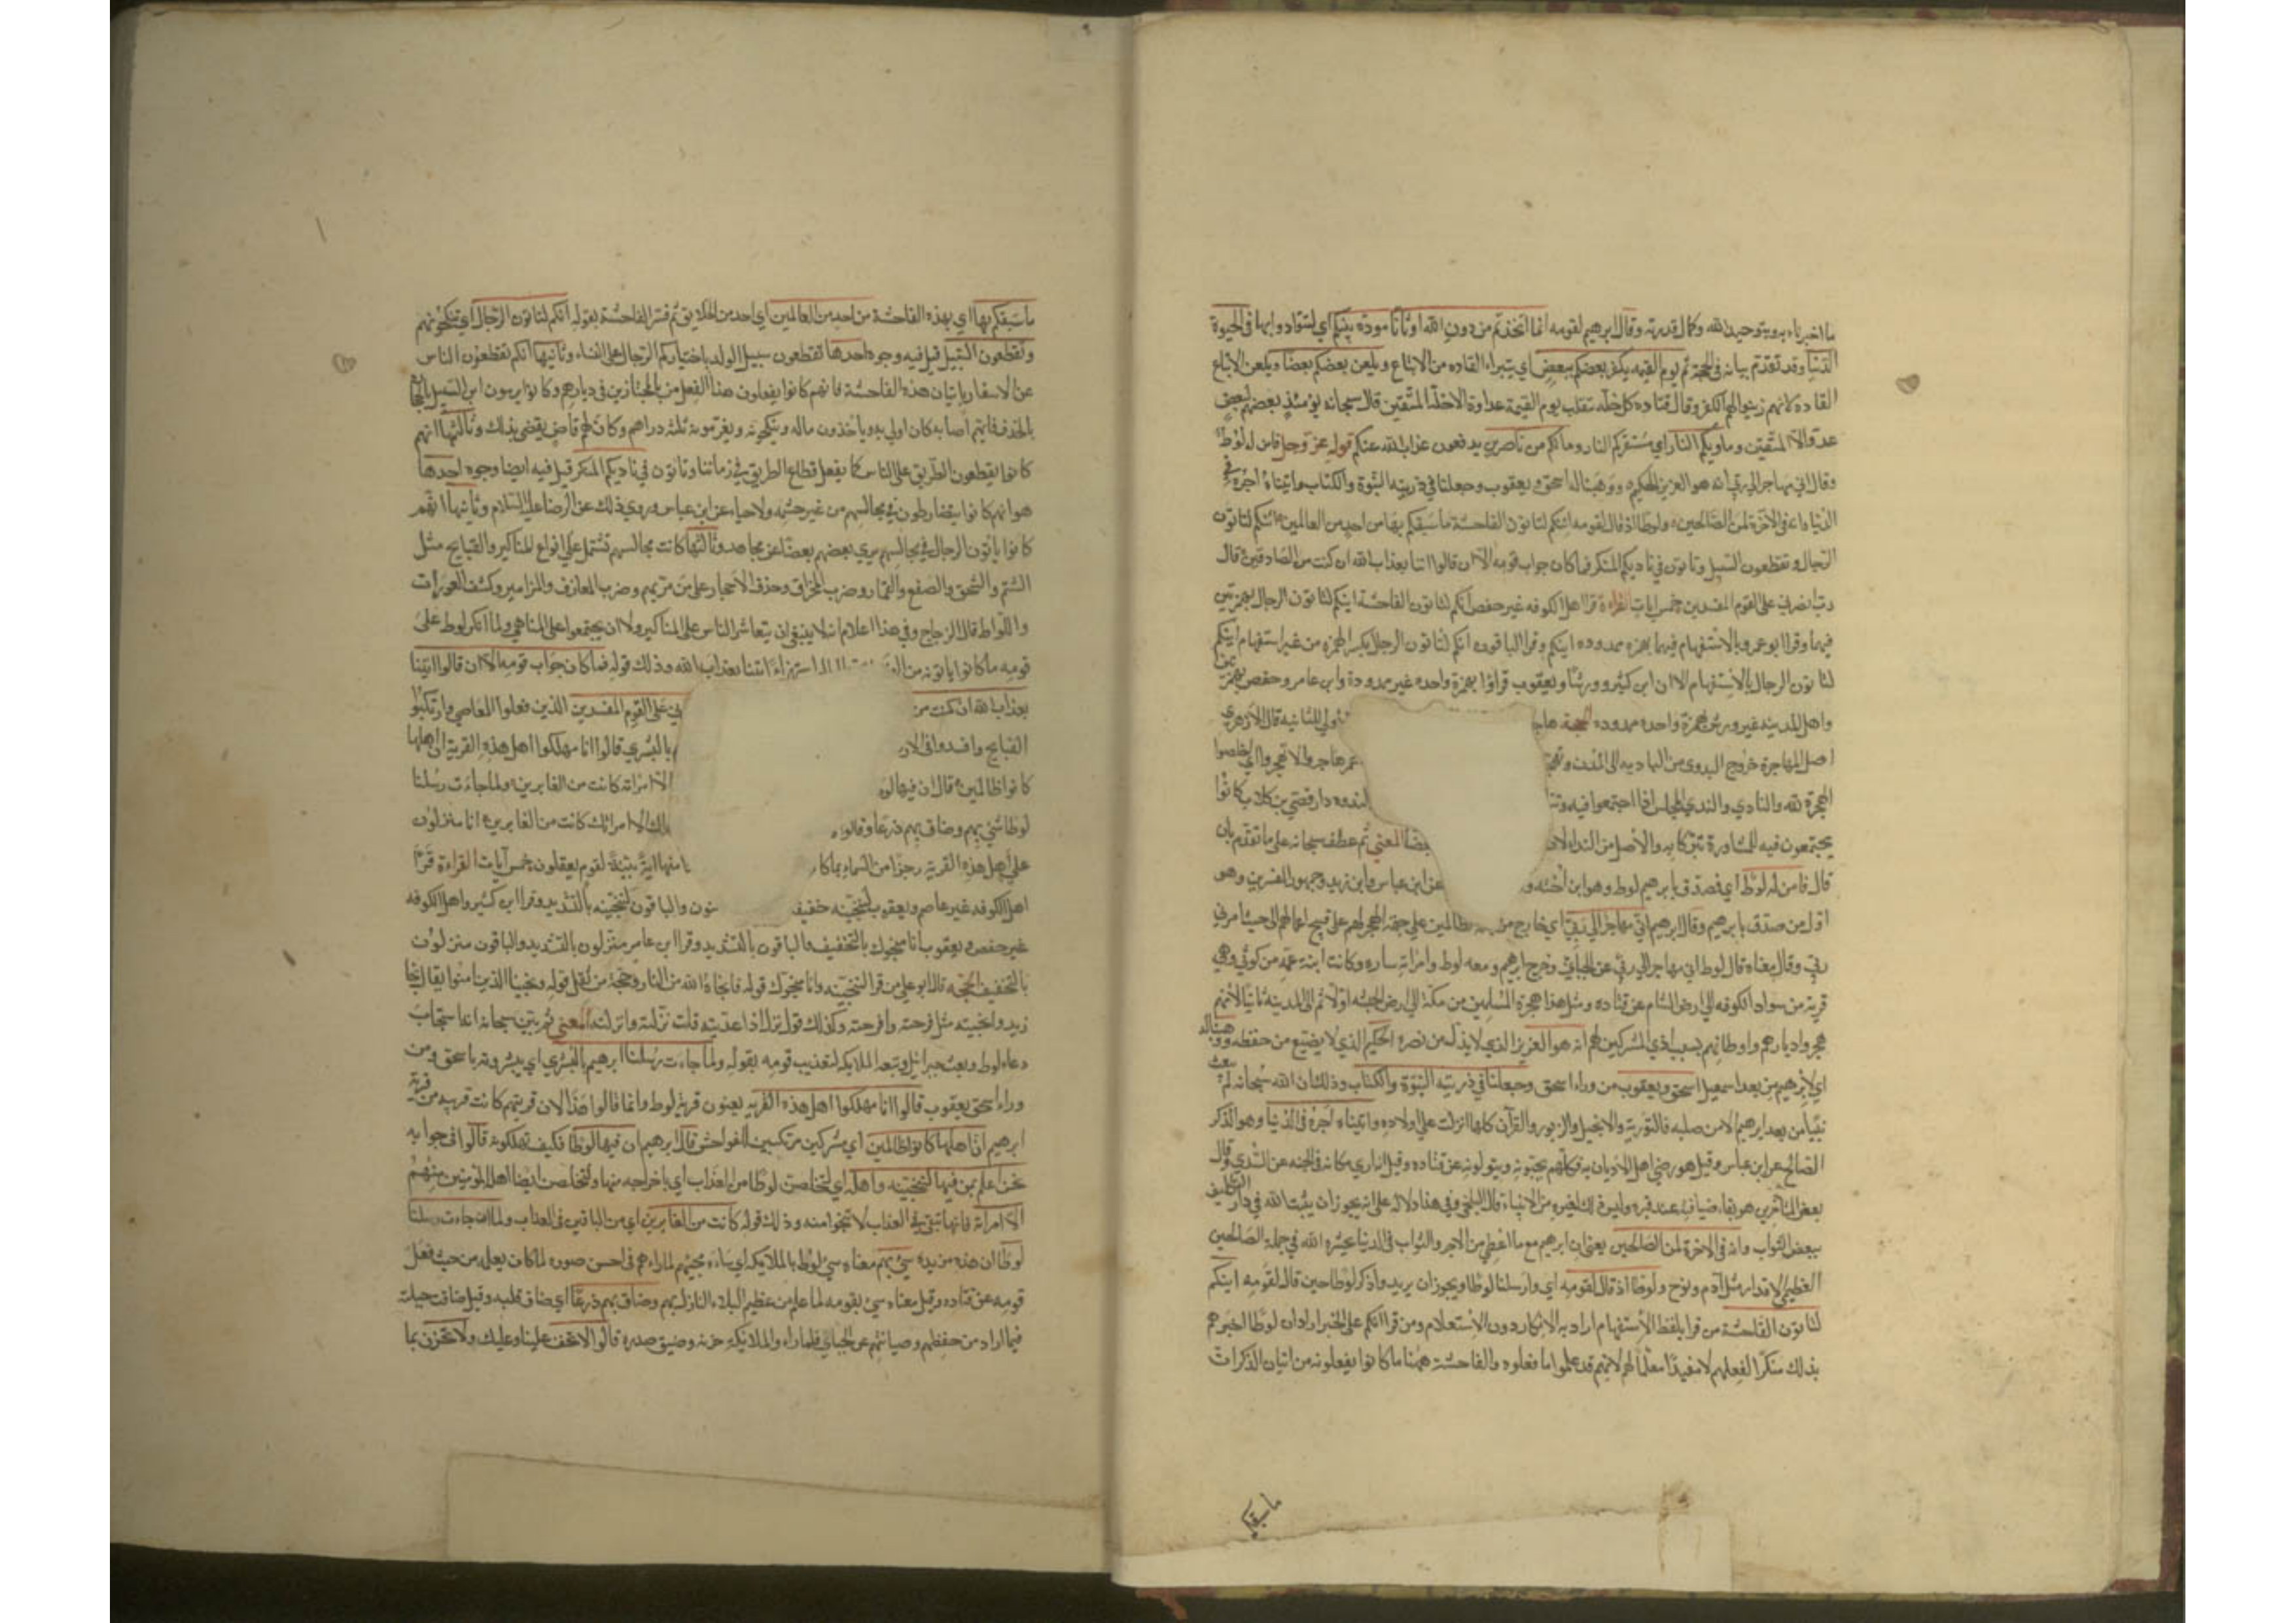 ما اخبرناه به ويتوحيد الله وكمال قدرته وقال ابرهيم لقومه انما اتخذتم من دون الله اوثانا مودة بينكم اي لتتوادوا بها في الحيوة
الدنيا وقد تقدم بيانه في الحجة ثم يوم القيمة يكفر بعضكم ببعض اي يتبراء القاده من الاتباع ويلعن بعضكم بعضا ويلعن الاتباع
القاده لانهم زينوا لهم الكفر وقال قتاده كل خلة تنقلب يوم القيمة عداوة الا خلة المتقين قال سبحانه يومئذ بعضهم لبعض
عدو الا المتقين وماويكم النار اي مستقركم النار وما لكم من ناصرين يدفعون عذاب الله عنكم قوله عز وجل فامن له لوط
وقال اني مهاجر الى ربي انه هو العزيز الحكيم ووهبنا له اسحق ويعقوب وجعلنا في ذريته النبوة والكتاب واتيناه اجره في
الدنيا وانه في الآخرة لمن الصالحين ولوطا اذ قال لقومه ائنكم لتاتون الفاحشة ما سبقكم بها من احد من العالمين ائنكم لتاتون
الرجال وتقطعون السبيل وتاتون في ناديكم المنكر فما كان جواب قومه الا ان قالوا ائتنا بعذاب الله ان كنت من الصادقين قال
رب انصرني على القوم المفسدين خمس ايات القراءة قرا اهل الكوفه غير حفص ائنكم لتاتون الفاحشة اينكم لتاتون الرجال بهمزتين
فيهما وقرا ابو عمرو بالاستفهام فيهما بهمزه ممدوده اينكم وقرا الباقون انكم لتاتون الرجال بكسر الهمزه من غير استفهام اينكم
لتاتون الرجال بالاستفهام الا ان ابن كثير وورشا ويعقوب قراوا بهمزة واحده غير ممدودة وابن عامر وحفص بهمزتين
واهل المدينة غير ورش بهمزة واحده ممدوده الحجة هاجـ ـولى للثانيه قال الازهري
اصل المهاجرة خروج البدوي من الباديه الى المدن عمر هاجروا ولا تهجروا اي اخلصوا
الهجرة لله والنادي والندي المجلس اذا اجتمعوا فيه الندوه دار قصي بن كلاب كانوا
يجتمعون فيه للمشاورة تبركا به والاصل من النداء لان المعنى ثم عطف سبحانه على ما تقدم بان
قال فامن له لوط اي فصدق بابرهيم لوط وهو ابن اخته عن ابن عباس وابن زيد وجمهور المفسرين وهو
اول من صدق بابرهيم وقال ابرهيم اني مهاجر الى ربي اي خارج من الظالمين على جهة الهجر لهم على قبيح اعمالهم الى حيث امرني
ربي وقال معناه قال لوط اني مهاجر الى ربي عن الجبائي وخرج ابرهيم ومعه لوط وامراته ساره وكانت ابنة عمه من كوثى وهي
قرية من سواد الكوفه الى ارض الشام عن قتاده ومثل هذا هجرة المسلمين من مكة الى ارض الحبشه اولا ثم الى المدينه ثانيا لانهم
هجروا ديارهم واوطانهم بسبب اذي المشركين لهم انه هو العزيز الذي لا يذل من نصره الحكيم الذي لا يضيع من حفظه ووهبنا له
اي لابرهيم من بعد اسمعيل اسحق ويعقوب من وراء اسحق وجعلنا في ذريته النبوة والكتاب وذلك ان الله سبحانه لم يبعث
نبيا من بعد ابرهيم الا من صلبه فالتورية والانجيل والزبور والقرآن كلها انزلت على ولاده واتيناه اجره في الدنيا وهو الذكر
الصالح عن ابن عباس وقيل هو رضي اهل الاديان به فكلهم يحبونه ويتولونه عن قتاده وقيل اناري مكانه في الجنه عن السدي وقال
بعض المتاخرين هو بقاء ضيافته عند قبره وليس ذلك لغيره من الانبياء قال البلخي وفي هذا دلالة على انه يجوز ان يثيب الله في دار التكليف
ببعض الثواب وانه في الاخرة لمن الصالحين يعني ان ابرهيم مع ما اعطي من الاجر والثواب في الدنيا يحشره الله في جملة الصالحين
العظيمي الاقدار مثل آدم ونوح ولوطا اذ قال لقومه اي وارسلنا لوطا ويجوز ان يريد واذكر لوطا حين قال لقومه اينكم
لتاتون الفاحشة من قرا بلفظ الاستفهام اراد به الانكار دون الاستعلام ومن قرا انكم على الخبر اراد ان لوطا اخبرهم
بذلك منكرا لفعلهم لا مفيدا معلما لهم لانهم قد علموا ما فعلوه والفاحشة ههنا ما كانوا يفعلونه من اتيان الذكران
ما سبقكم
ما سبقكم بها اي بهذه الفاحشة من احد من العالمين اي احد من الخلايق ثم فسر الفاحشة بقوله انكم لتاتون الرجال اي تنكحونهم
وتقطعون السبيل قيل فيه وجوه احدها تقطعون سبيل الولد باختياركم الرجال على النساء وثانيها انكم تقطعون الناس
عن الاسفار باتيان هذه الفاحشة فانهم كانوا يفعلون هذا الفعل بالمجتازين في ديارهم وكانوا يرمون ابن السبيل بالحجارة
بالحذف فايهم اصابه كان اولى به وياخذون ماله وينكحونه ويغرمونه ثلثه دراهم وكان لهم قاض يقضي بذلك وثالثها انهم
كانوا يقطعون الطريق على الناس كما يفعل قطاع الطريق في زماننا وتاتون في ناديكم المنكر قيل فيه ايضا وجوه احدها
هو انهم كانوا يتضارطون في مجالسهم من غير حشمه ولا حياء عن ابن عباس وروي ذلك عن الرضا عليه السلام وثانيها انهم
كانوا ياتون الرجال في مجالسهم يري بعضهم بعضا عن مجاهد وثالثها كانت مجالسهم تشتمل على انواع المناكير والقبايح مثل
الشتم والسخف والصفع والقمار وضرب المخراق وحذف الاحجار على من مر بهم وضرب المعازف والمزامير وكشف العورات
واللواط قال الزجاج وفي هذا اعلام انه لا ينبغي ان يتعاشر الناس على المناكير ولا ان يجتمعوا على المناهي ولما انكر لوط على
قومه ما كانوا ياتونه من استهزاء ائتنا بعذاب الله وذلك قوله فما كان جواب قومه الا ان قالوا ائتنا
بعذاب الله ان كنت من ـني على القوم المفسدين الذين فعلوا المعاصي وارتكبوا
القبايح وافسدوا في الار بالبشري قالوا انا مهلكوا اهل هذه القرية ان اهلها
كانوا ظالمين قال ان فيها لو الا امراته كانت من الغابرين ولما جاءت رسلنا
لوطا سيء بهم وضاق بهم ذرعا وقالوا ـلك الا امراتك كانت من الغابرين انا منزلون
على اهل هذه القرية رجزا من السماء بما كا ـا منها اية بينة لقوم يعقلون خمس آيات القراءة قرا
اهل الكوفه غير عاصم ويعقوب لننجينه خفيفـ ـنون والباقون لننجينه بالتشديد وقرا ابن كثير واهل الكوفه
غير حفص ويعقوب انا منجوك بالتخفيف والباقون بالتشديد وقرا ابن عامر منزلون بالتشديد والباقون منزلون
بالتخفيف الحجه قال ابو علي من قرا لننجينه وانا منجوك قوله فانجاه الله من النار وحجة من ثقل قوله ونجينا الذين امنوا يقال نجا
زيد وانجيته مثل فرحته وافرحته وكذلك قوله نزل اذا عديته قلت نزلته وانزلته المعنى ثم بين سبحانه انه استجاب
دعاء لوط وبعث جبرائيل ومعه الملايكه لتعذيب قومه بقوله ولما جاءت رسلنا ابرهيم بالبشري اي يبشرونه باسحق ومن
وراء اسحق يعقوب قالوا انا مهلكوا اهل هذه القريه يعنون قرية لوط وانما قالوا هذا لان قريتهم كانت قريبه من قرية
ابرهيم ان اهلها كانوا ظالمين اي مشركين مرتكبين للفواحش قال ابرهيم ان فيها لوطا فكيف تهلكونه قالوا في جوابه
نحن اعلم بمن فيها لننجينه واهله اي لنخلصن لوطا من العذاب اي باخراجه منها ولنخلصن ايضا اهله المومنين منهم
الا امراته فانها تبقى في العذاب لا تنجوا منه وذلك قوله كانت من الغابرين اي من الباقين في العذاب ولما ان جاءت رسلنا
لوطا ان هذه مزيده سيء بهم معناه سيء لوط بالملايكه اي ساءه مجيئهم لما راهم في احسن صوره لما كان يعلم من خبث فعل
قومه عن قتاده وقيل معناه سيء بقومه لما علم من عظيم البلاء النازل بهم وضاق بهم ذرعا اي ضاق قلبه وقيل ضاقت حيلته
فيما اراد من حفظهم وصيانتهم عن الجبائي فلما راء والملايكة حزنه وضيق صدره قالوا لا تخف علينا وعليك ولا تحزن بما